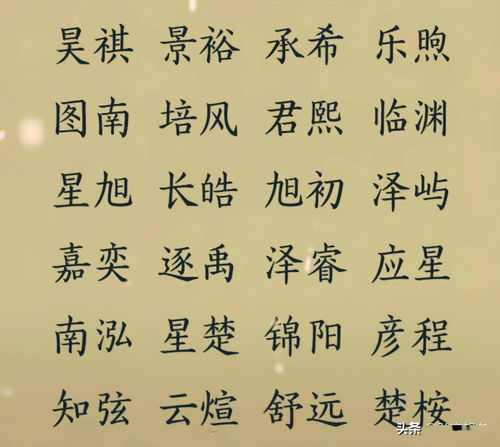 昊祺 景裕 承希 乐煦
图南 培风 君熙 临渊
星旭 长皓 旭初 泽屿
嘉奕 逐禹 泽睿 应星
南泓 星楚 锦阳 彦程
知弦 云煊 舒远 楚桉
头条